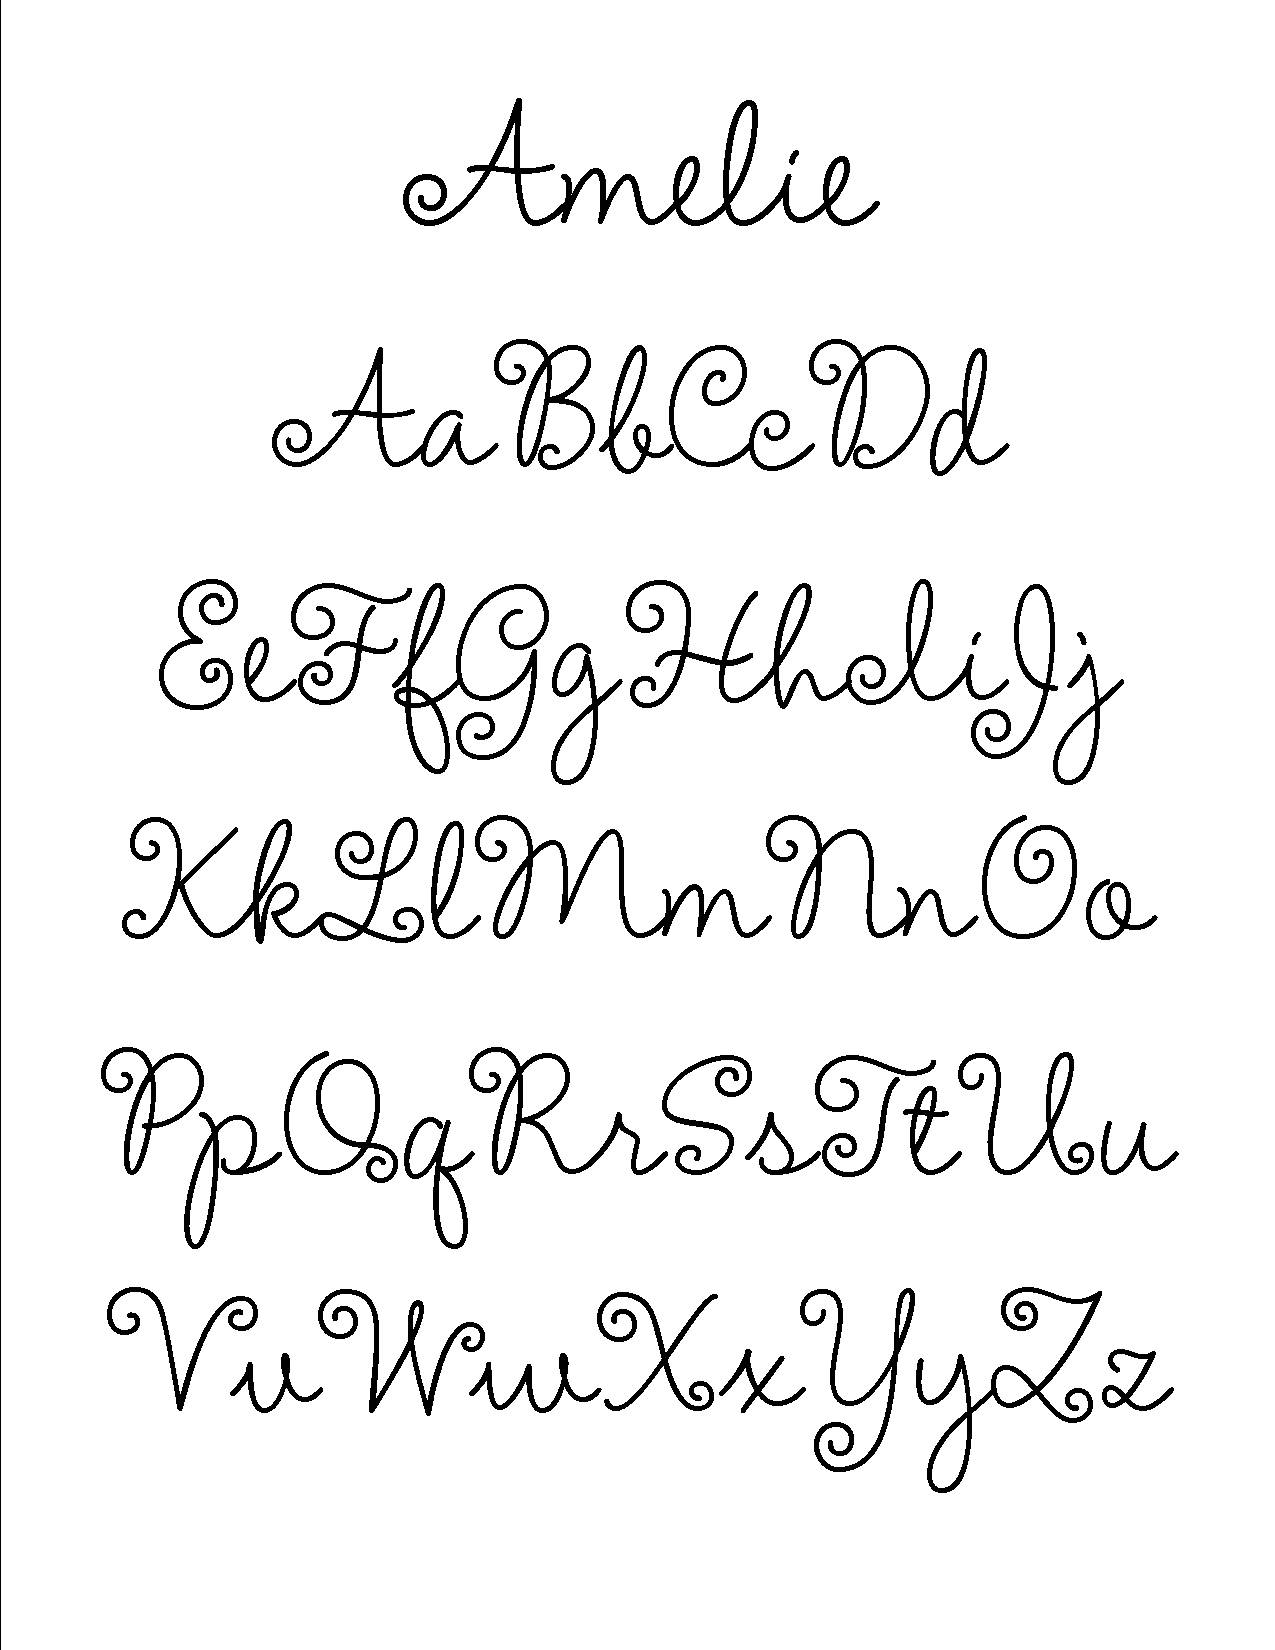 Amelie
AaBbCcDd
EeFfGgHhIiJj
KkLlMmNnOo
PpQqRrSsTtUu
VvWwXxYyZz